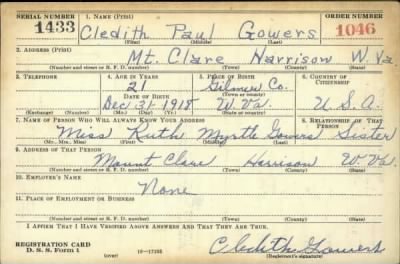 SERIAL NUMBER 1. NAME (Print) ORDER NUMBER
1433 Cledith Paul Gowers 1046
(First) (Middle) (Last)
2. ADDRESS (Print)
Mt. Clare Harrison W. Va
(Number and street or R. F. D. number) (Town) (County) (State)
3. TELEPHONE 4. AGE IN YEARS 5. PLACE OF BIRTH 6. COUNTRY OF CITIZENSHIP
21 Gilmer Co.
DATE OF BIRTH (Town or county)
Dec 31 1918 W. Va. U. S. A.
(Exchange) (Number) (Mo.) (Day) (Yr.) (State or country)
7. NAME OF PERSON WHO WILL ALWAYS KNOW YOUR ADDRESS 8. RELATIONSHIP OF THAT PERSON
Miss Ruth Myrtle Gowers Sister
(Mr., Mrs., Miss) (First) (Middle) (Last)
9. ADDRESS OF THAT PERSON
Mount Clare Harrison W Va.
(Number and street or R. F. D. number) (Town) (County) (State)
10. EMPLOYER'S NAME
None
11. PLACE OF EMPLOYMENT OR BUSINESS
(Number and street or R. F. D. number) (Town) (County) (State)
I AFFIRM THAT I HAVE VERIFIED ABOVE ANSWERS AND THAT THEY ARE TRUE.
REGISTRATION CARD Cledith Gowers
D. S. S. FORM 1 (over) (Registrant's signature)